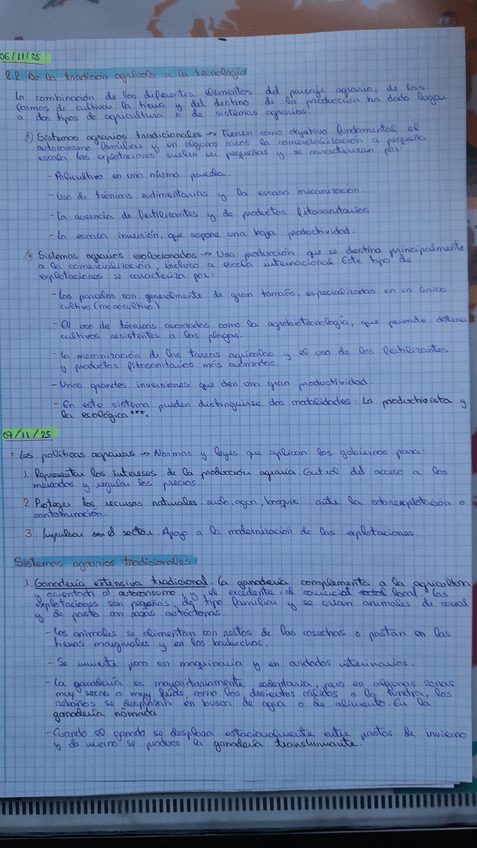 06/11/25
2.2 De la tradición agrícola a la tecnología
La combinación de los diferentes elementos del paisaje agrario, de las
formas de cultivar la tierra y del destino de la producción ha dado lugar
a dos tipos de agricultura o de sistemas agrarios:
1) Sistemas agrarios tradicionales → Tienen como objetivo fundamental el
autoconsumo familiar y en algunos casos la comercialización a pequeña
escala. Las explotaciones suelen ser pequeñas y se caracterizan por:
- Policultivo en una misma parcela.
- Uso de técnicas rudimentarias y la escasa mecanización.
- La ausencia de fertilizantes y de productos fitosanitarios.
- La escasa inversión, que supone una baja productividad.
Sistemas agrarios evolucionados → Una producción que se destina principalmente
a la comercialización, incluso a escala internacional. Este tipo de
explotaciones se caracteriza por:
- Las parcelas son generalmente de gran tamaño, especializadas en un único
cultivo (monocultivo).
- El uso de técnicas avanzadas como la agrobiotecnología, que permite obtener
cultivos resistentes a las plagas.
- La mecanización de las tareas agrícolas y el uso de los fertilizantes
y productos fitosanitarios más avanzados.
- Unas grandes inversiones que den una gran productividad.
- En este sistema pueden distinguirse dos modalidades: La productivista y
la ecológica***.
07/11/25
Las políticas agrarias → Normas y leyes que aplican los gobiernos para:
1. Representar los intereses de la producción agraria. Control del acceso a los
mercados y regular los precios.
2. Proteger los recursos naturales, suelo, agua, bosque, ante la sobreexplotación o
contaminación.
3. Impulsar el sector. Apoyo a la modernización de las explotaciones.
Sistemas agrarios tradicionales
1. Ganadería extensiva tradicional. La ganadería complementa a la agricultura
y orientada al autoconsumo y el excedente al comercial local. Las
explotaciones son pequeñas, de tipo familiar y se crían animales de corral
y de pasto con razas autóctonas.
- Los animales se alimentan con restos de las cosechas o pastan en las
tierras marginales y en los barbechos.
- Se invierte poco en maquinaria y en cuidados veterinarios.
- La ganadería es mayoritariamente sedentaria, pero en algunas zonas
muy secas o muy frías, como los desiertos cálidos o la tundra, los
rebaños se desplazan en busca de agua o de alimento. Es la
ganadería nómada.
- Cuando el ganado se desplaza estacionalmente entre pastos de invierno
y de verano se produce la ganadería transhumante.